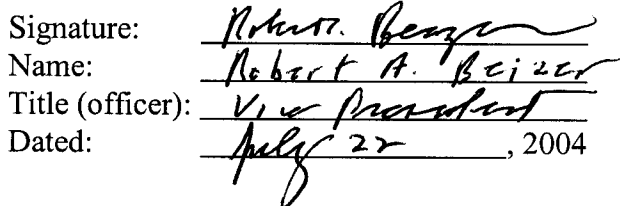 Signature: Robert A. Beizer
Name: Robert A. Beizer
Title (officer): Vice President
Dated: July 22, 2004